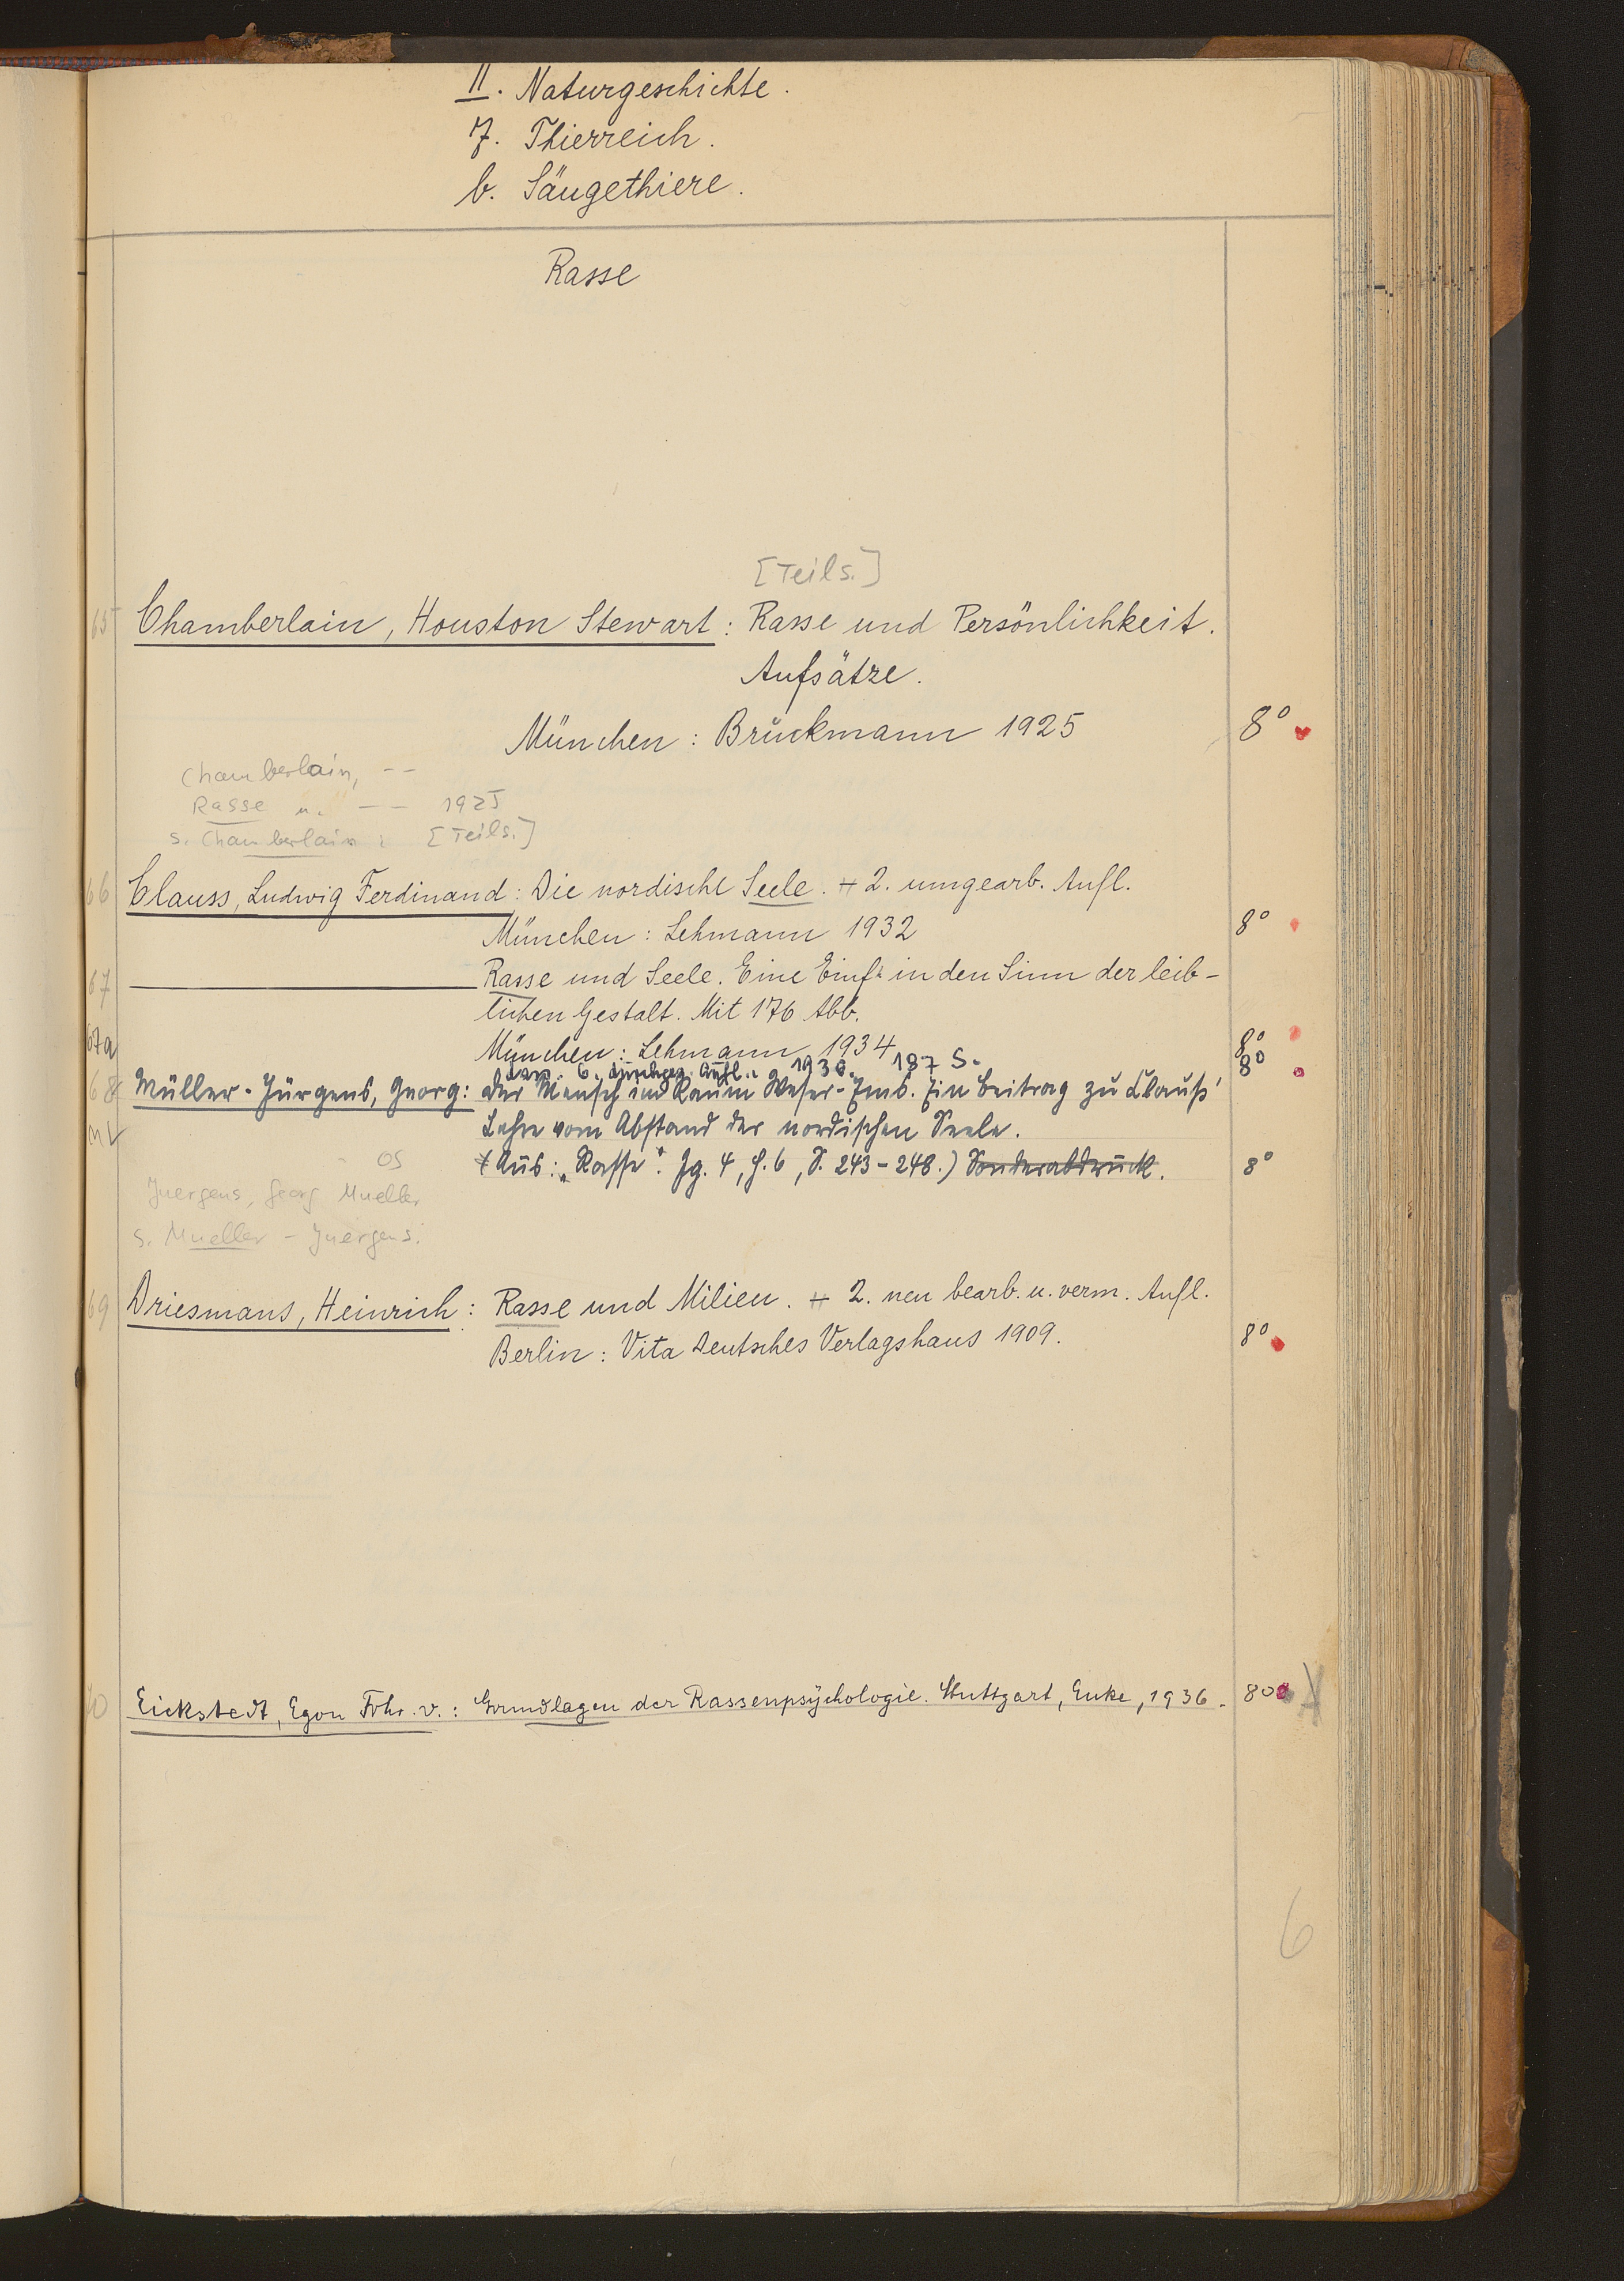 II. Naturgeschichte.
7. Thierreich.
b. Säugethiere.
Rasse
[Teils.]
65 Chamberlain, Houston Stewart: Rasse und Persönlichkeit.
Aufsätze.
München: Bruckmann 1925 8°
Chamberlain, --
Rasse u. -- 1925
s. Chamberlain: [Teils.]
66 Clauss, Ludwig Ferdinand: Die nordische Seele. 2. umgearb. Aufl.
München: Lehmann 1932 8°
67 Rasse und Seele. Eine Einf. in den Sinn der leib-
lichen Gestalt. Mit 176 Abb.
München: Lehmann 1934 8°
67a 6. durchges. Aufl. 1936. 187 S. 8°
68 Müller-Jürgens, Georg: Der Mensch im Raum Weser-Ems. Ein Beitrag zu Clauß'
Lehre vom Abstand der nordischen Seele.
(Aus: „Rasse". Jg. 4, H. 6, S. 243-248.) Sonderabdruck. 8°
OS
Juergens, Georg Mueller
s. Mueller-Juergens.
69 Driesmans, Heinrich: Rasse und Milieu. 2. neu bearb. u. verm. Aufl.
Berlin: Vita Deutsches Verlagshaus 1909. 8°
70 Eickstedt, Egon Frhr. v.: Grundlagen der Rassenpsychologie. Stuttgart, Enke, 1936. 8°
6